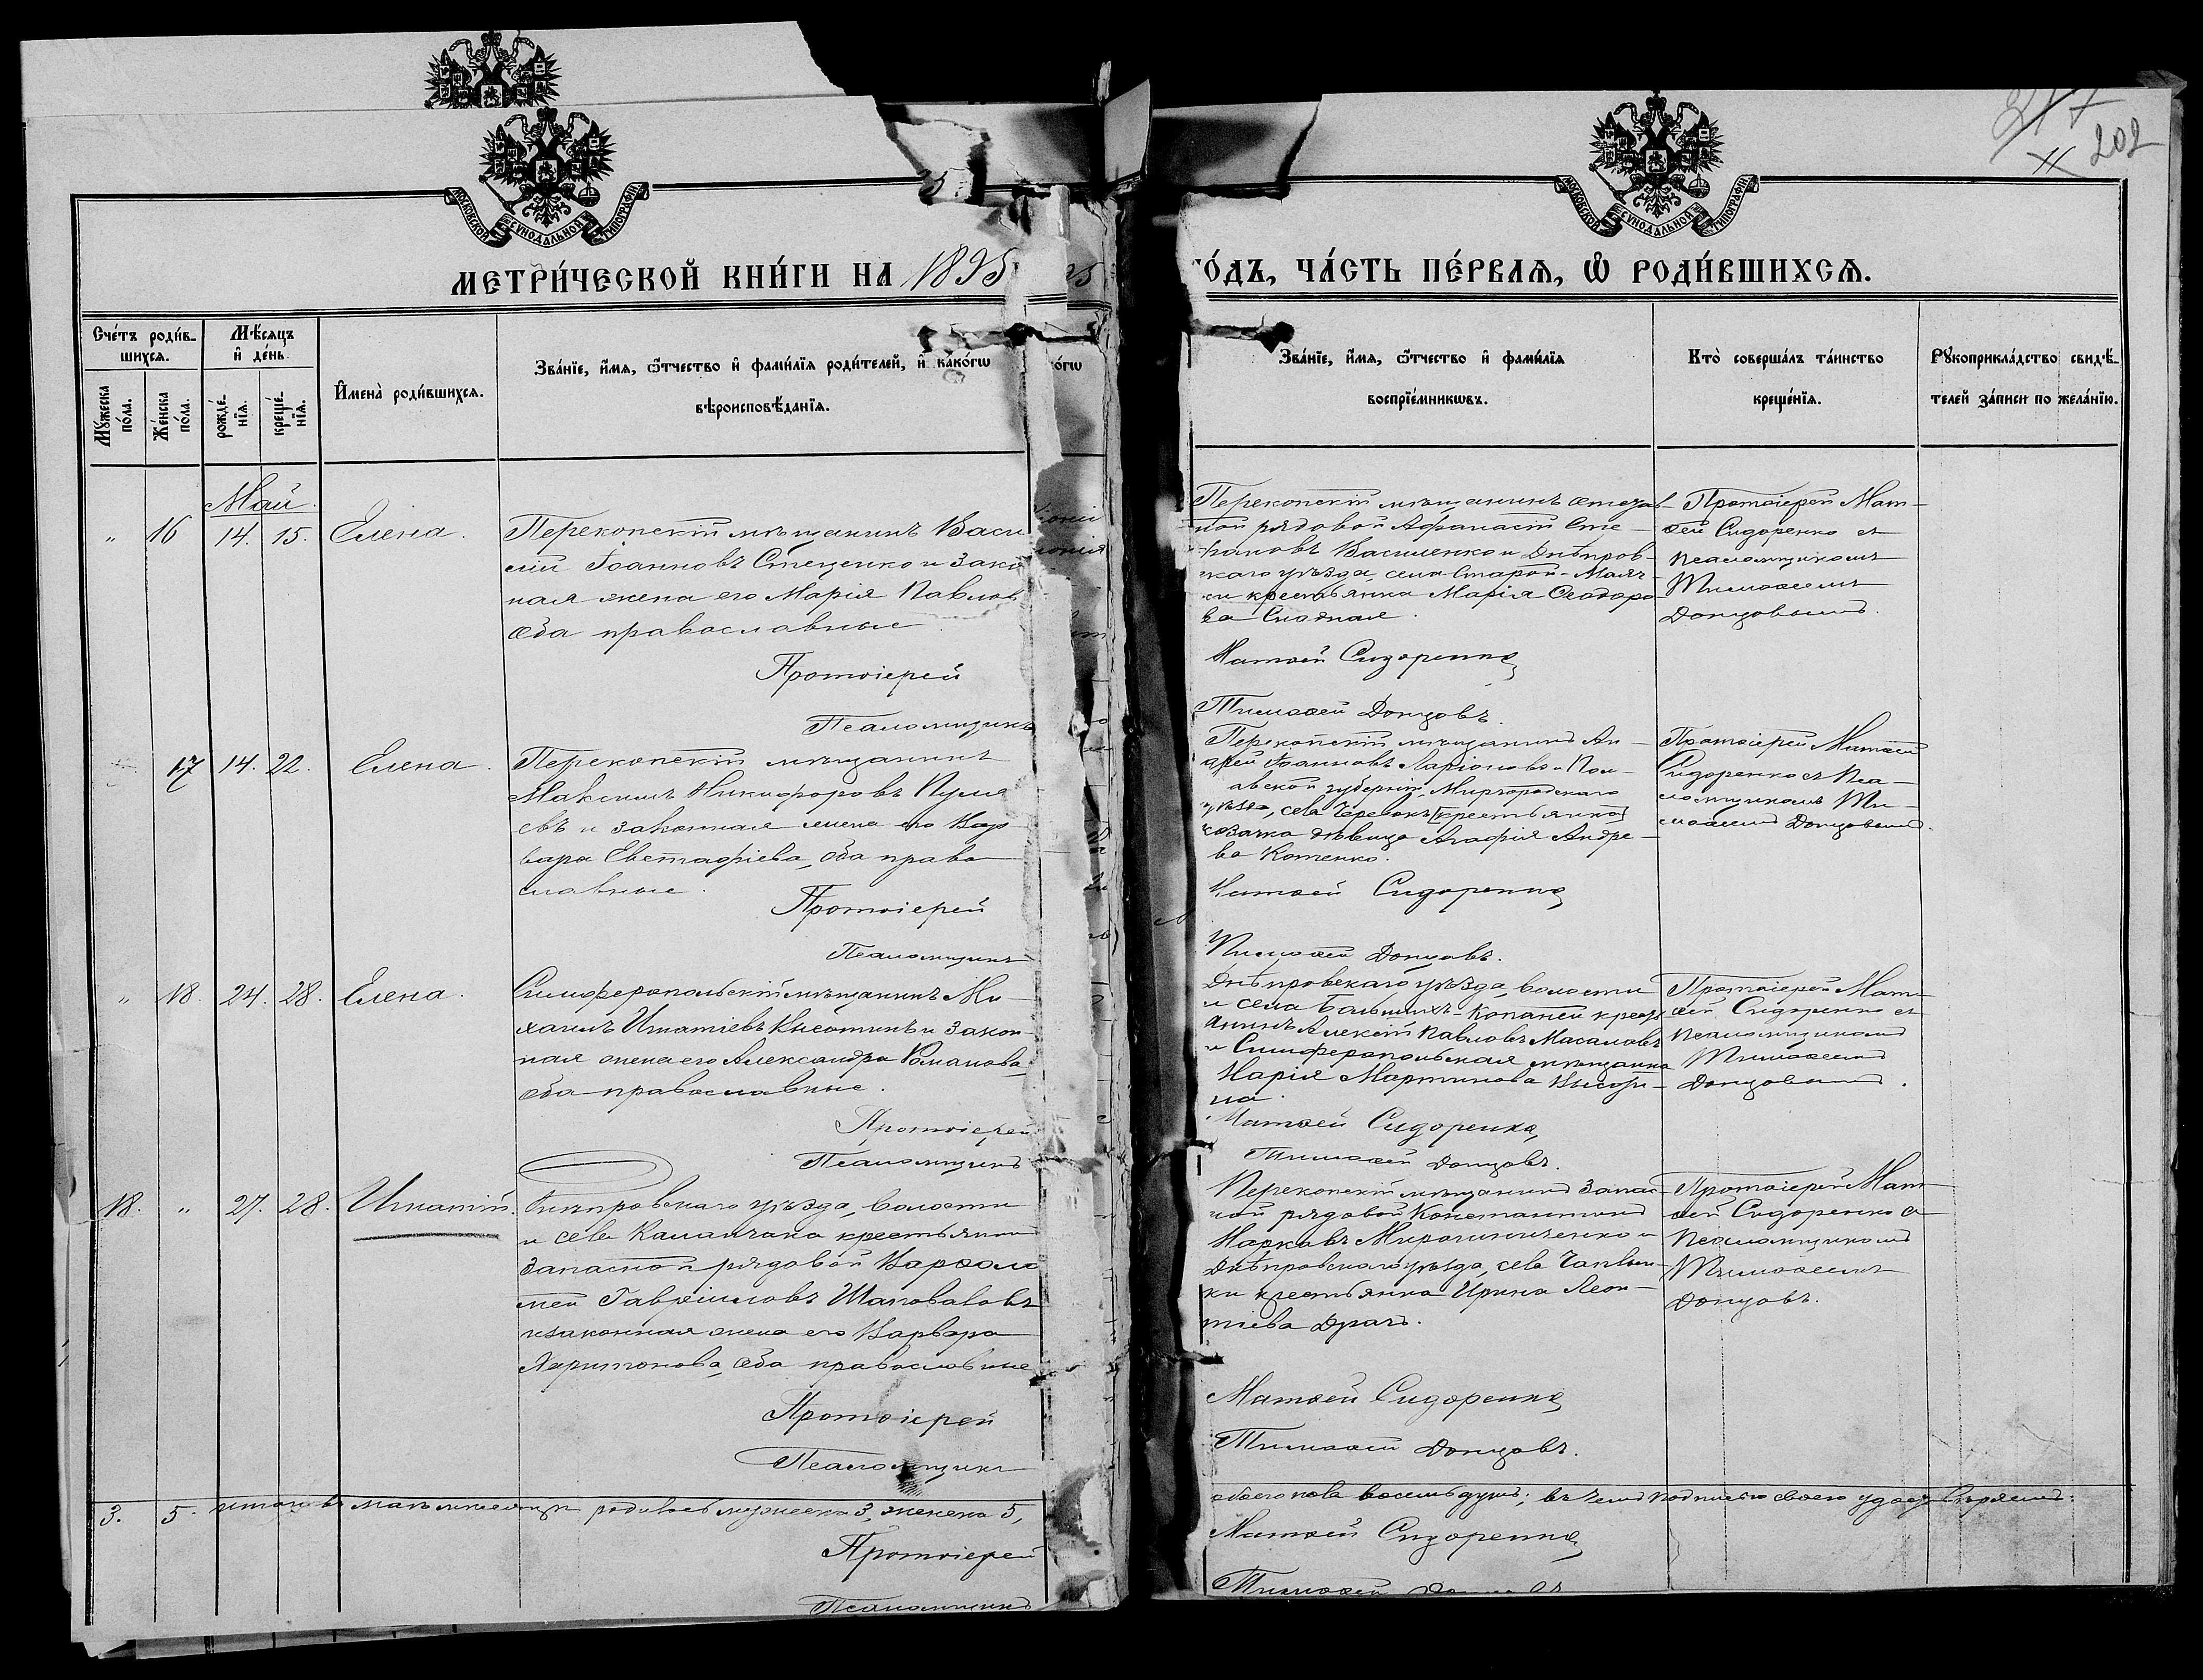 МОСКОВСКОЙ СѴНОДАЛЬНОЙ ТИПОГРАФІИ
МОСКОВСКОЙ СѴНОДАЛЬНОЙ ТИПОГРАФІИ
202
МЕТРИ́ЧЕСКОЙ КНИ́ГИ НА 1895
О́ДЪ, ЧА́СТЬ ПЕ́РВАѦ, Ѿ РОДИ́ВШИХСѦ.
Сче́тъ роди́в-
шихсѧ.
Мѣ́сяцъ
и҆ де́нь
Мꙋ́жеска по́ла.
Же́нска по́ла.
рожде́-нїѧ.
креще́-нїѧ.
И҆мена̀ роди́вшихсѧ.
Зва́нїе, и҆́мѧ, ѻ҆́тчество и҆ фами́лїѧ роди́телей, и҆ како́гѡ
вѣроисповѣ́данїѧ.
Зва́нїе, и҆́мѧ, ѻ҆́тчество и҆ фами́лїѧ
воспрїе́мникѡвъ.
Кто̀ соверша́лъ та́инство
креще́нїѧ.
Рꙋкоприкла́дство свидѣ́-
телей за́писи по жела́нїю.
Май
" 16 14. 15. Елена.
Перекопскій мѣщанинъ Васи
лій Іоанновъ Стеценко и зако
ная жена его Марія Павлов
оба православные.
Протоіерей
Псаломщикъ
Перекопскій мѣщанинъ отстав-
ной рядовой Афанасій Сте-
фановъ Василенко и Днѣпров-
скаго уѣзда, села Старой-Маяч-
ки крестьянка Марія Ѳеодоро-
ва
Матѳей Сидоренко
Тимоѳей Донцовъ.
Протоіерей Мат-
ѳей Сидоренко съ
псаломщикомъ
Тимоѳеемъ
Донцовымъ.
17 14. 22. Елена.
Перекопскій мѣщанинъ
Максимъ Никифоровъ
евъ и законная жена его Вар-
вара Евстафіева, оба право
славные.
Протоіерей
Псаломщикъ
Перекопскій мѣщанинъ Ан-
дрей Іоанновъ Ларіоновъ и Пол-
тавской губерніи, Миргородскаго
уѣзда, села [крестьянка]
козачка дѣвица Агафія Андре-
ва Котенко.
Матѳей Сидоренко
Тимоѳей Донцовъ.
Протоіерей Матѳей
Сидоренко съ Пса-
ломщикомъ Ти-
моѳеемъ Донцовымъ.
" 18. 24. 28. Елена.
Симферопольскій мѣщанинъ Ми-
хаилъ Игнатіевъ Высотинъ и закон-
ная жена его Александра Романова,
оба православные.
Протоіерей
Псаломщикъ
Днѣпровскаго уѣзда, волости
и села Большихъ-Копаней крестья
анинъ Алексій Павловъ Масаловъ
и Симферопольская мѣщанка
Марія Мартинова Высоти-
на.
Матѳей Сидоренко,
Тимоѳей Донцовъ.
Протоіерей Мат-
ѳей Сидоренко съ
псаломщикомъ
Тимоѳеемъ
Донцовымъ.
18. " 27. 28. Игнатій.
Днѣпровскаго уѣзда, волости
и села Каланчака крестьянинъ
запасной рядовой Варѳоло
мей Гавріиловъ Шаповаловъ
и законная жена его Варвара
Харитонова, оба православные
Протоіерей
Псаломщикъ
Перекопскій мѣщанинъ запас-
ной рядовой Константинъ
Марковъ Мирошниченко и
Днѣпровскаго уѣзда, села Чаплын-
ки крестьянка Ирина Леон-
тіева Драчъ.
Матѳей Сидоренко
Тимоѳей Донцовъ.
Протоіерей Мат-
ѳей Сидоренко съ
Псаломщикомъ
Тимоѳеемъ
Донцовъ.
3. 5. итого въ маѣ мѣсяцѣ родилось мужеска 3, женска 5,
обоего пола восемь душъ; въ чемъ подписью своею
Протоіерей
Матѳей Сидоренко
Псаломщикъ
Тимоѳей